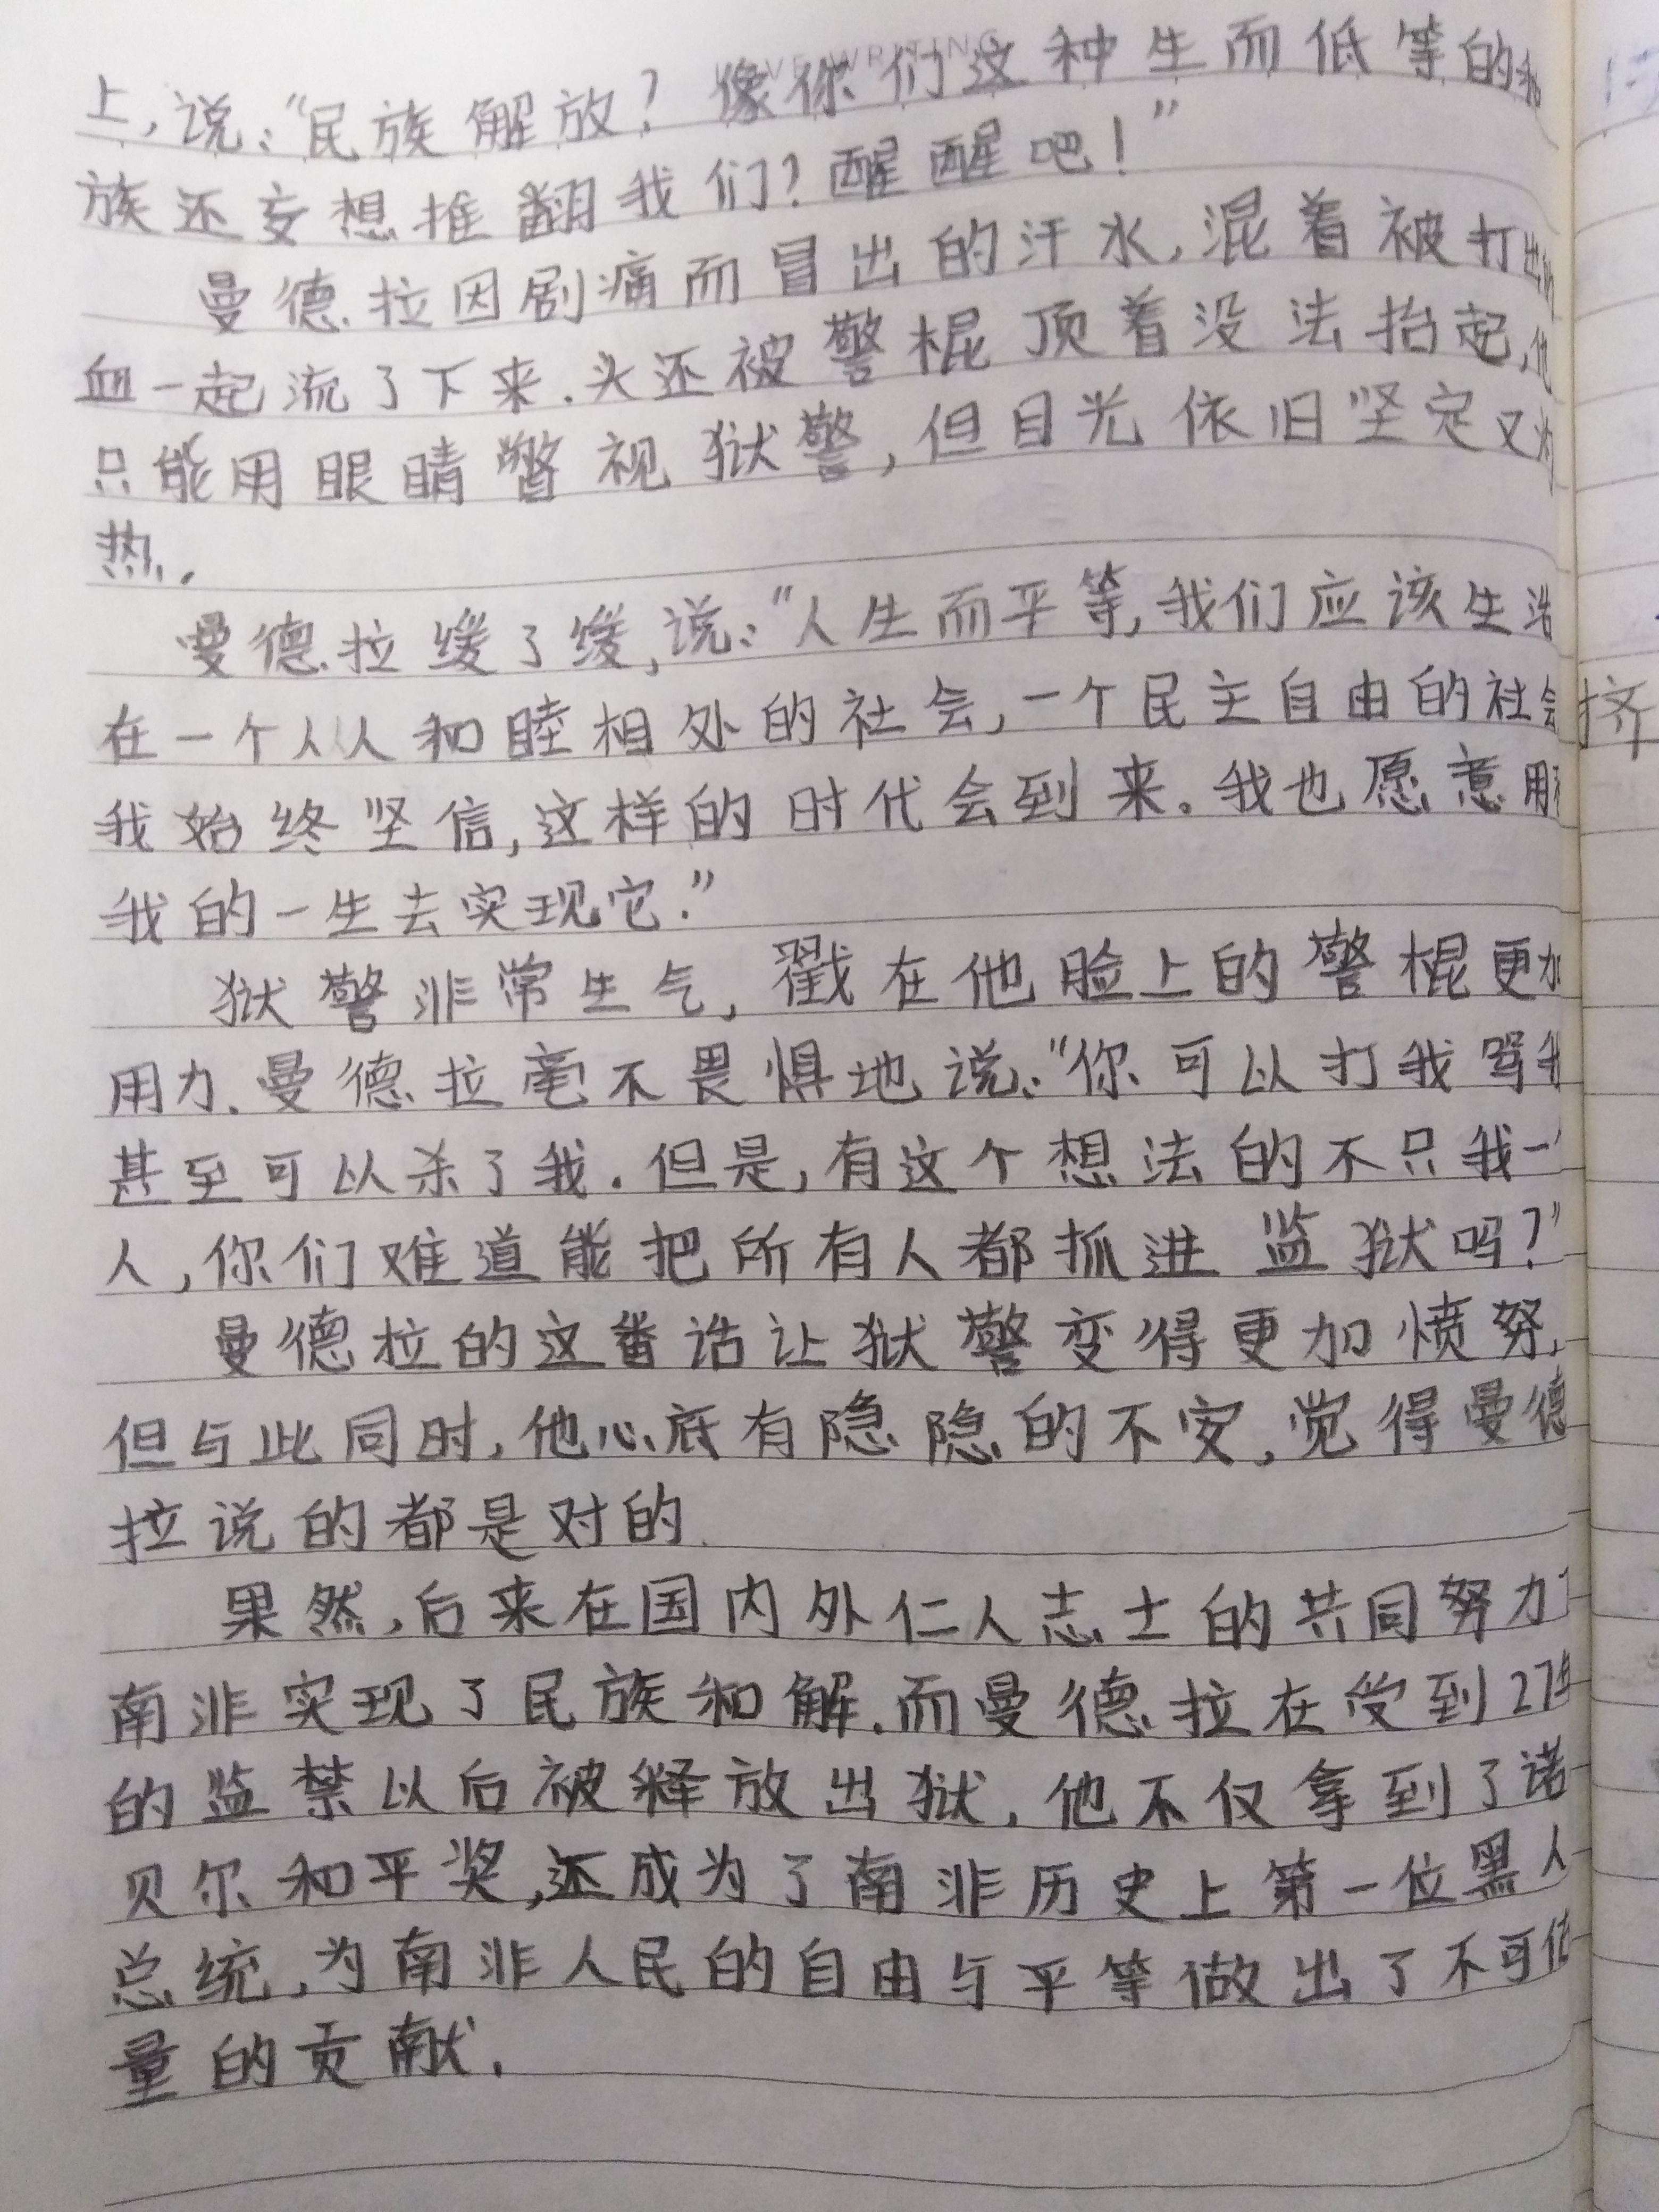 LOVE WRITING
上,说:“民族解放?像你们这种生而低等的种
族还妄想推翻我们?醒醒吧!”
曼德拉因剧痛而冒出的汗水,混着被打出的
血一起流了下来.头还被警棍顶着没法抬起,他
只能用眼睛警视狱警,但目光依旧坚定又灼
热.
曼德拉缓了缓,说:“人生而平等,我们应该生活
在一个人人和睦相处的社会,一个民主自由的社会
我始终坚信,这样的时代会到来.我也愿意用
我的一生去实现它.”
狱警非常生气,戳在他脸上的警棍更加
用力.曼德拉毫不畏惧地说:“你可以打我骂我
甚至可以杀了我.但是,有这个想法的不只我一
人,你们难道能把所有人都抓进监狱吗?”
曼德拉的这番话让狱警变得更加愤努,
但与此同时,他心底有隐隐的不安,觉得曼德
拉说的都是对的.
果然,后来在国内外仁人志士的共同努力下
南非实现了民族和解.而曼德拉在受到27年
的监禁以后被释放出狱,他不仅拿到了诺
贝尔和平奖,还成为了南非历史上第一位黑人
总统,为南非人民的自由与平等做出了不可估
量的贡献.
挤